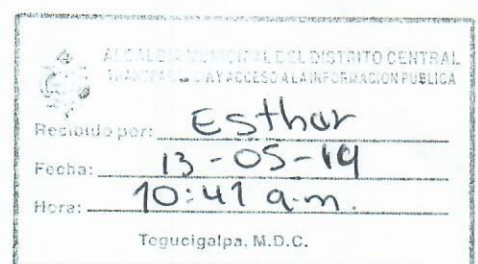 ALCALDIA MUNICIPAL DEL DISTRITO CENTRAL
TRANSPARENCIA Y ACCESO A LA INFORMACION PUBLICA
Recibido por: Esther
Fecha: 13-05-19
Hora: 10:41 a.m.
Tegucigalpa, M.D.C.